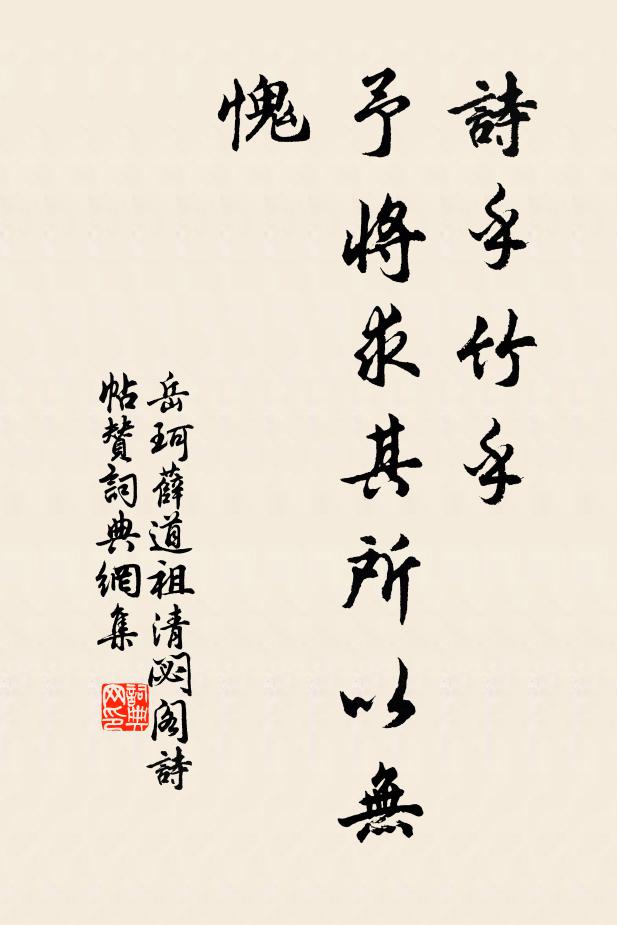 詩乎竹乎
予將求其所以無
愧
岳珂薛道祖清閟閣詩
帖贊詞典網集
詞典
网印